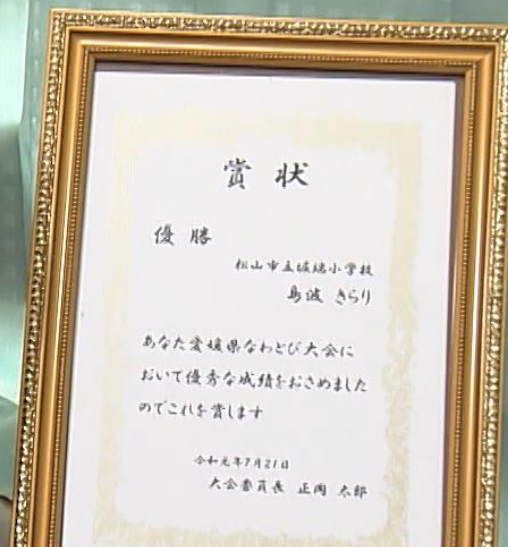 賞状
優勝
松山市立坂端小学校
島波 きらり
あなた愛媛県なわとび大会に
おいて優秀な成績をおさめました
のでこれを賞します
令和元年7月21日
大会委員長 正岡 太郎